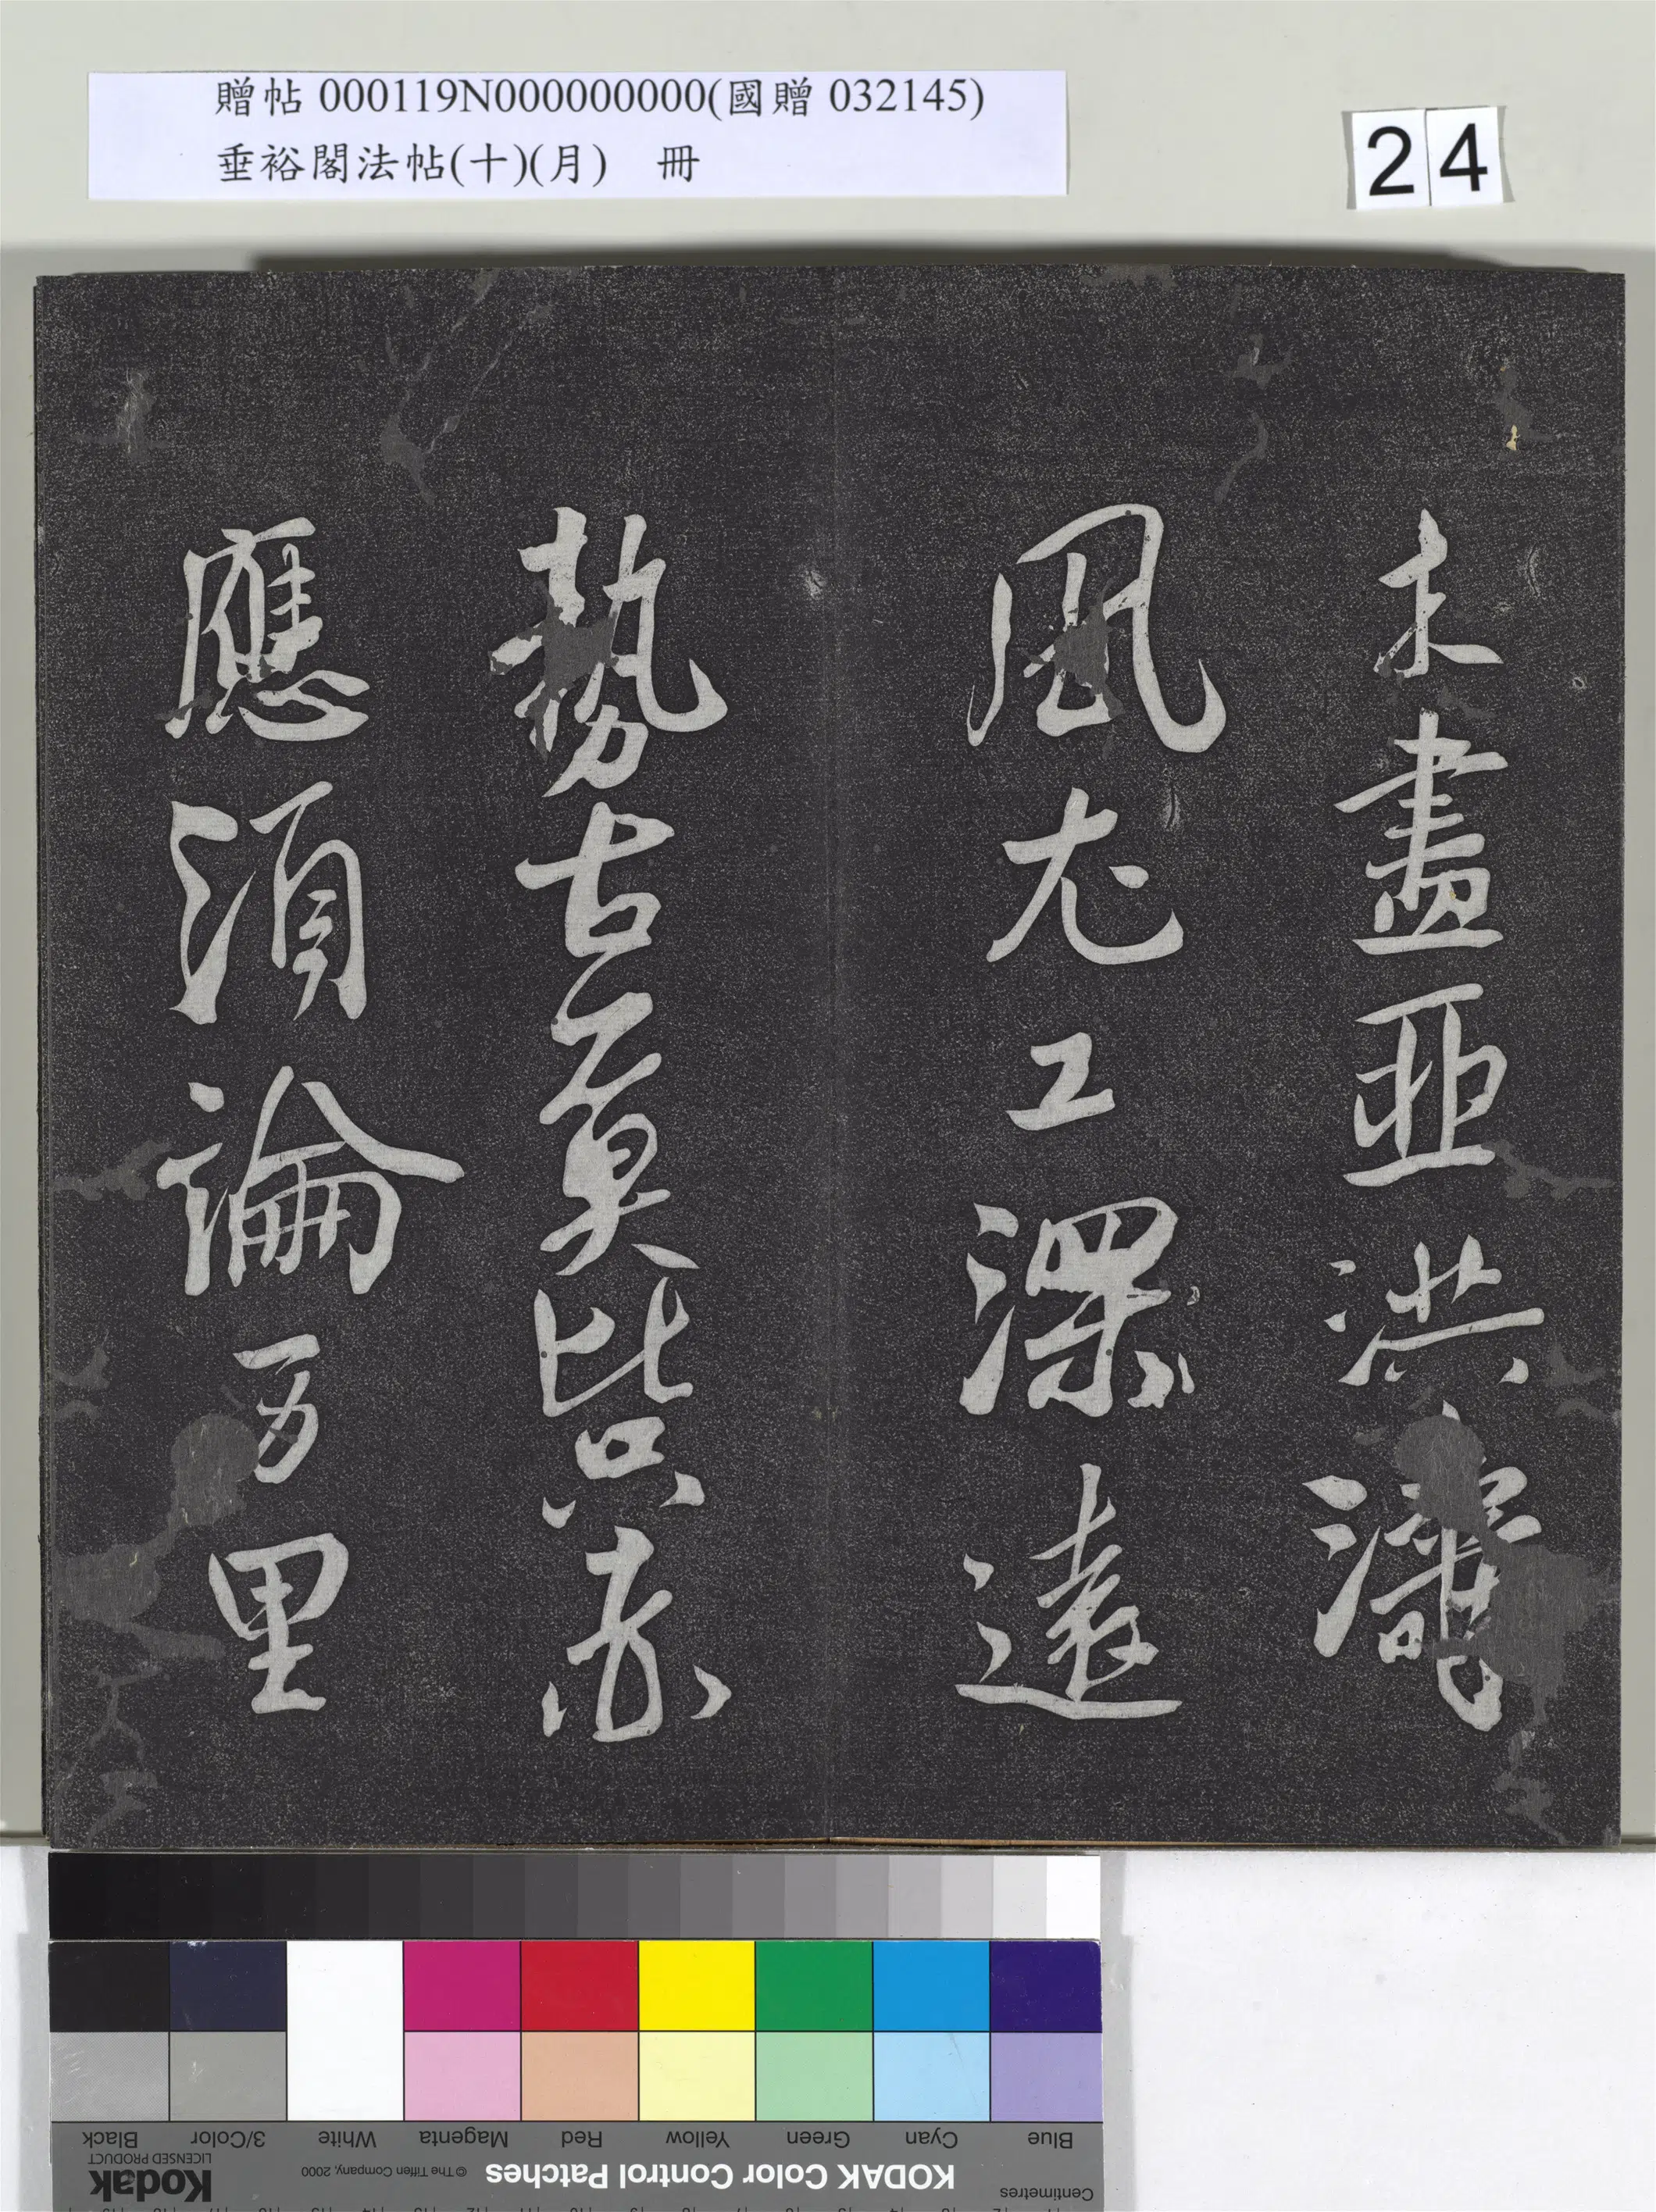 贈帖 000119N000000000(國贈 032145)
垂裕閣法帖(十)(月) 冊
24
木盡亞洪濤
風尤工深遠
勢古莫比只赤
應須論万里
Blue Cyan Green Yellow Red Magenta White 3/Color Black
KODAK Color Control Patches
© The Tiffen Company, 2000
Kodak
LICENSED PRODUCT
Centimetres